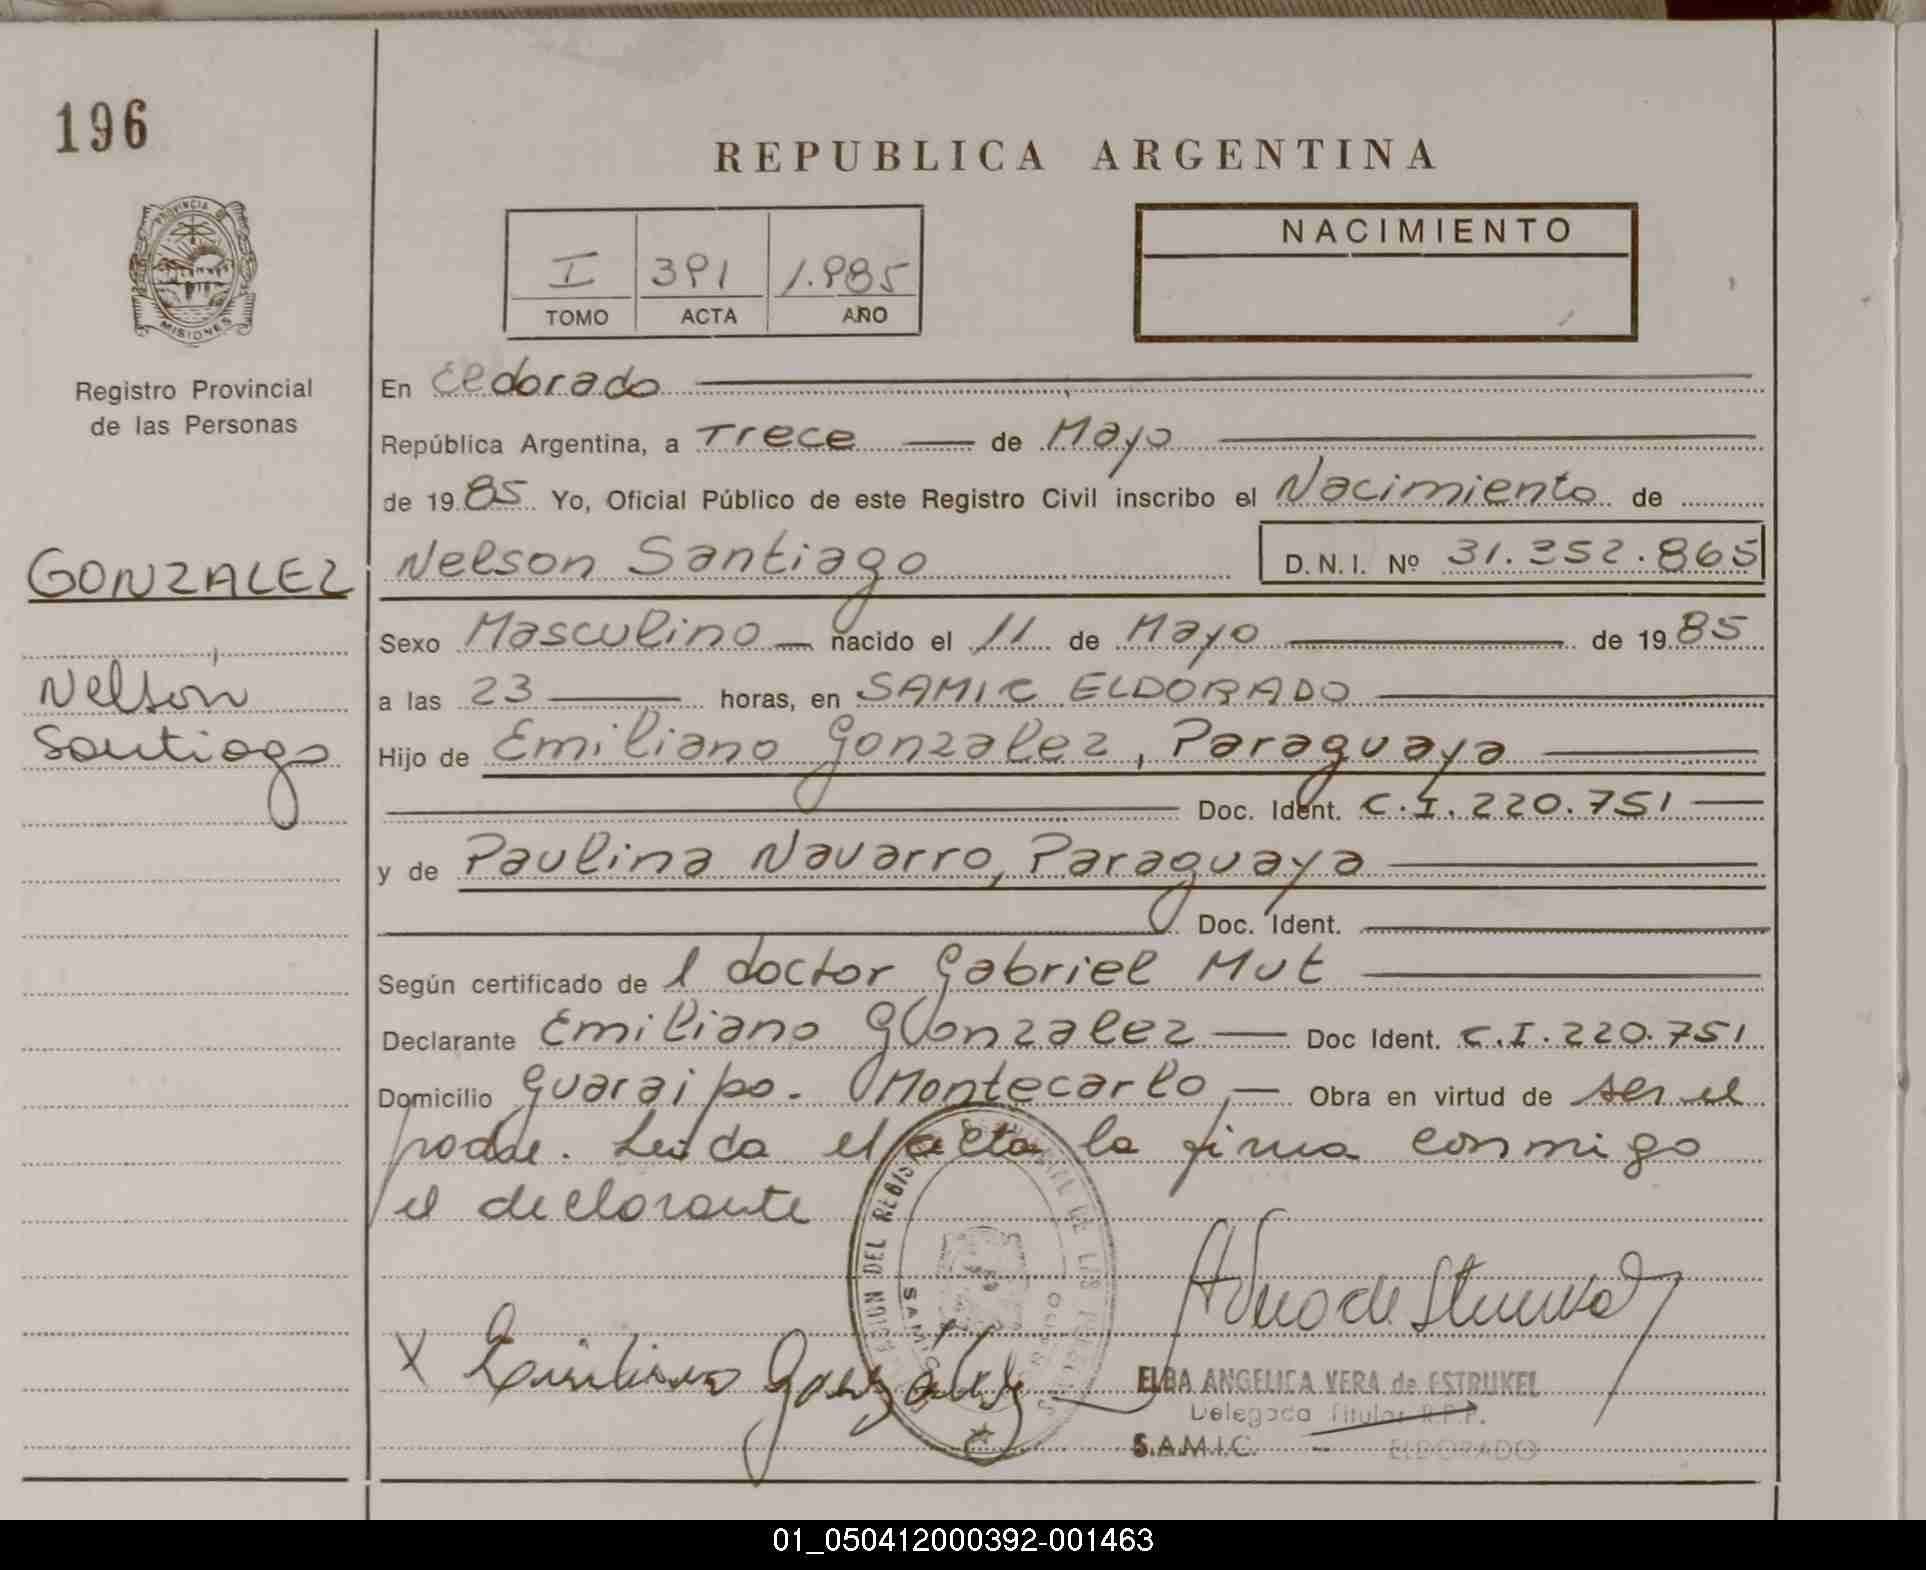 196
REPUBLICA ARGENTINA
PROVINCIA DE
MISIONES
Registro Provincial
de las Personas
I 391 1.985
TOMO ACTA AÑO
NACIMIENTO
En Eldorado
República Argentina, a Trece de Mayo
de 1985 Yo, Oficial Público de este Registro Civil inscribo el Nacimiento de
GONZALEZ
Nelson Santiago D.N.I. Nº 31.352.865
Sexo Masculino nacido el 11 de Mayo de 1985
Nelson
Santiago
a las 23 horas, en SAMIC ELDORADO
Hijo de Emiliano Gonzalez, Paraguaya
Doc. Ident. C.I. 220.751
y de Paulina Navarro, Paraguaya
Doc. Ident.
Según certificado de l doctor Gabriel Mut
Declarante Emiliano Gonzalez Doc Ident. C.I. 220.751
Domicilio Guaraipo. Montecarlo, Obra en virtud de ser el
padre. Leida el acta la firma conmigo
el declarante
DEL REGIS DE LAS
SAMIC
X Emiliano Gonzalez
ELBA ANGELICA VERA de ESTRUKEL
Delegada Titular R.P.P.
S.A.M.I.C. - ELDORADO
01_050412000392-001463